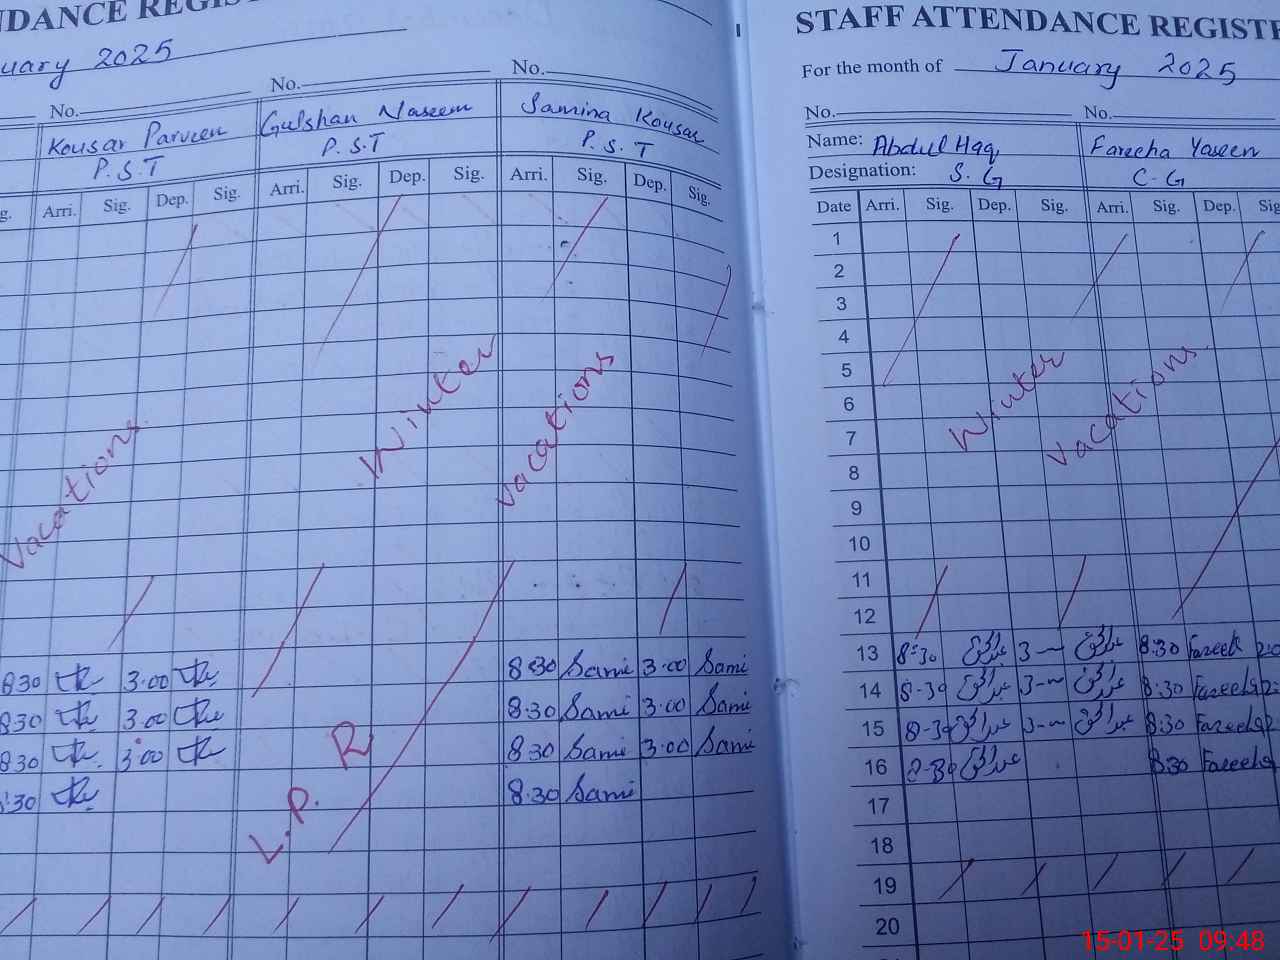 NDANCE REGIS
uary 2025
No. No. No.
Kousar Parveen Gulshan Naseem Samina Kousar
P.S.T P.S.T P.S.T
g. Arri. Sig. Dep. Sig. Arri. Sig. Dep. Sig. Arri. Sig. Dep. Sig.
Winter
Vacations Vacations
830 3.00 8:30 Sami 3.00 Sami
830 3.00 8.30 Sami 3.00 Sami
830 3.00 8.30 Sami 3.00 Sami
:30 8.30 Sami
L.P.R
STAFF ATTENDANCE REGISTE
For the month of January 2025
No. No.
Name: Abdul Haq Fareeha Yaseen
Designation: S.G C-G
Date Arri. Sig. Dep. Sig. Arri. Sig. Dep. Sig
1
2
3
4
5
6
Winter Vacations
7
8
9
10
11
12
13 8:30 عبدالحق 3-- عبدالحق 8:30 Fareeh
14 8-30 عبدالحق 3-- عبدالحق 8:30 Fareeha
15 8-30 عبدالحق 3-- عبدالحق 8:30 Fareeha
16 8-30 عبدالحق 8:30 Fareeha
17
18
19
20
15-01-25 09:48